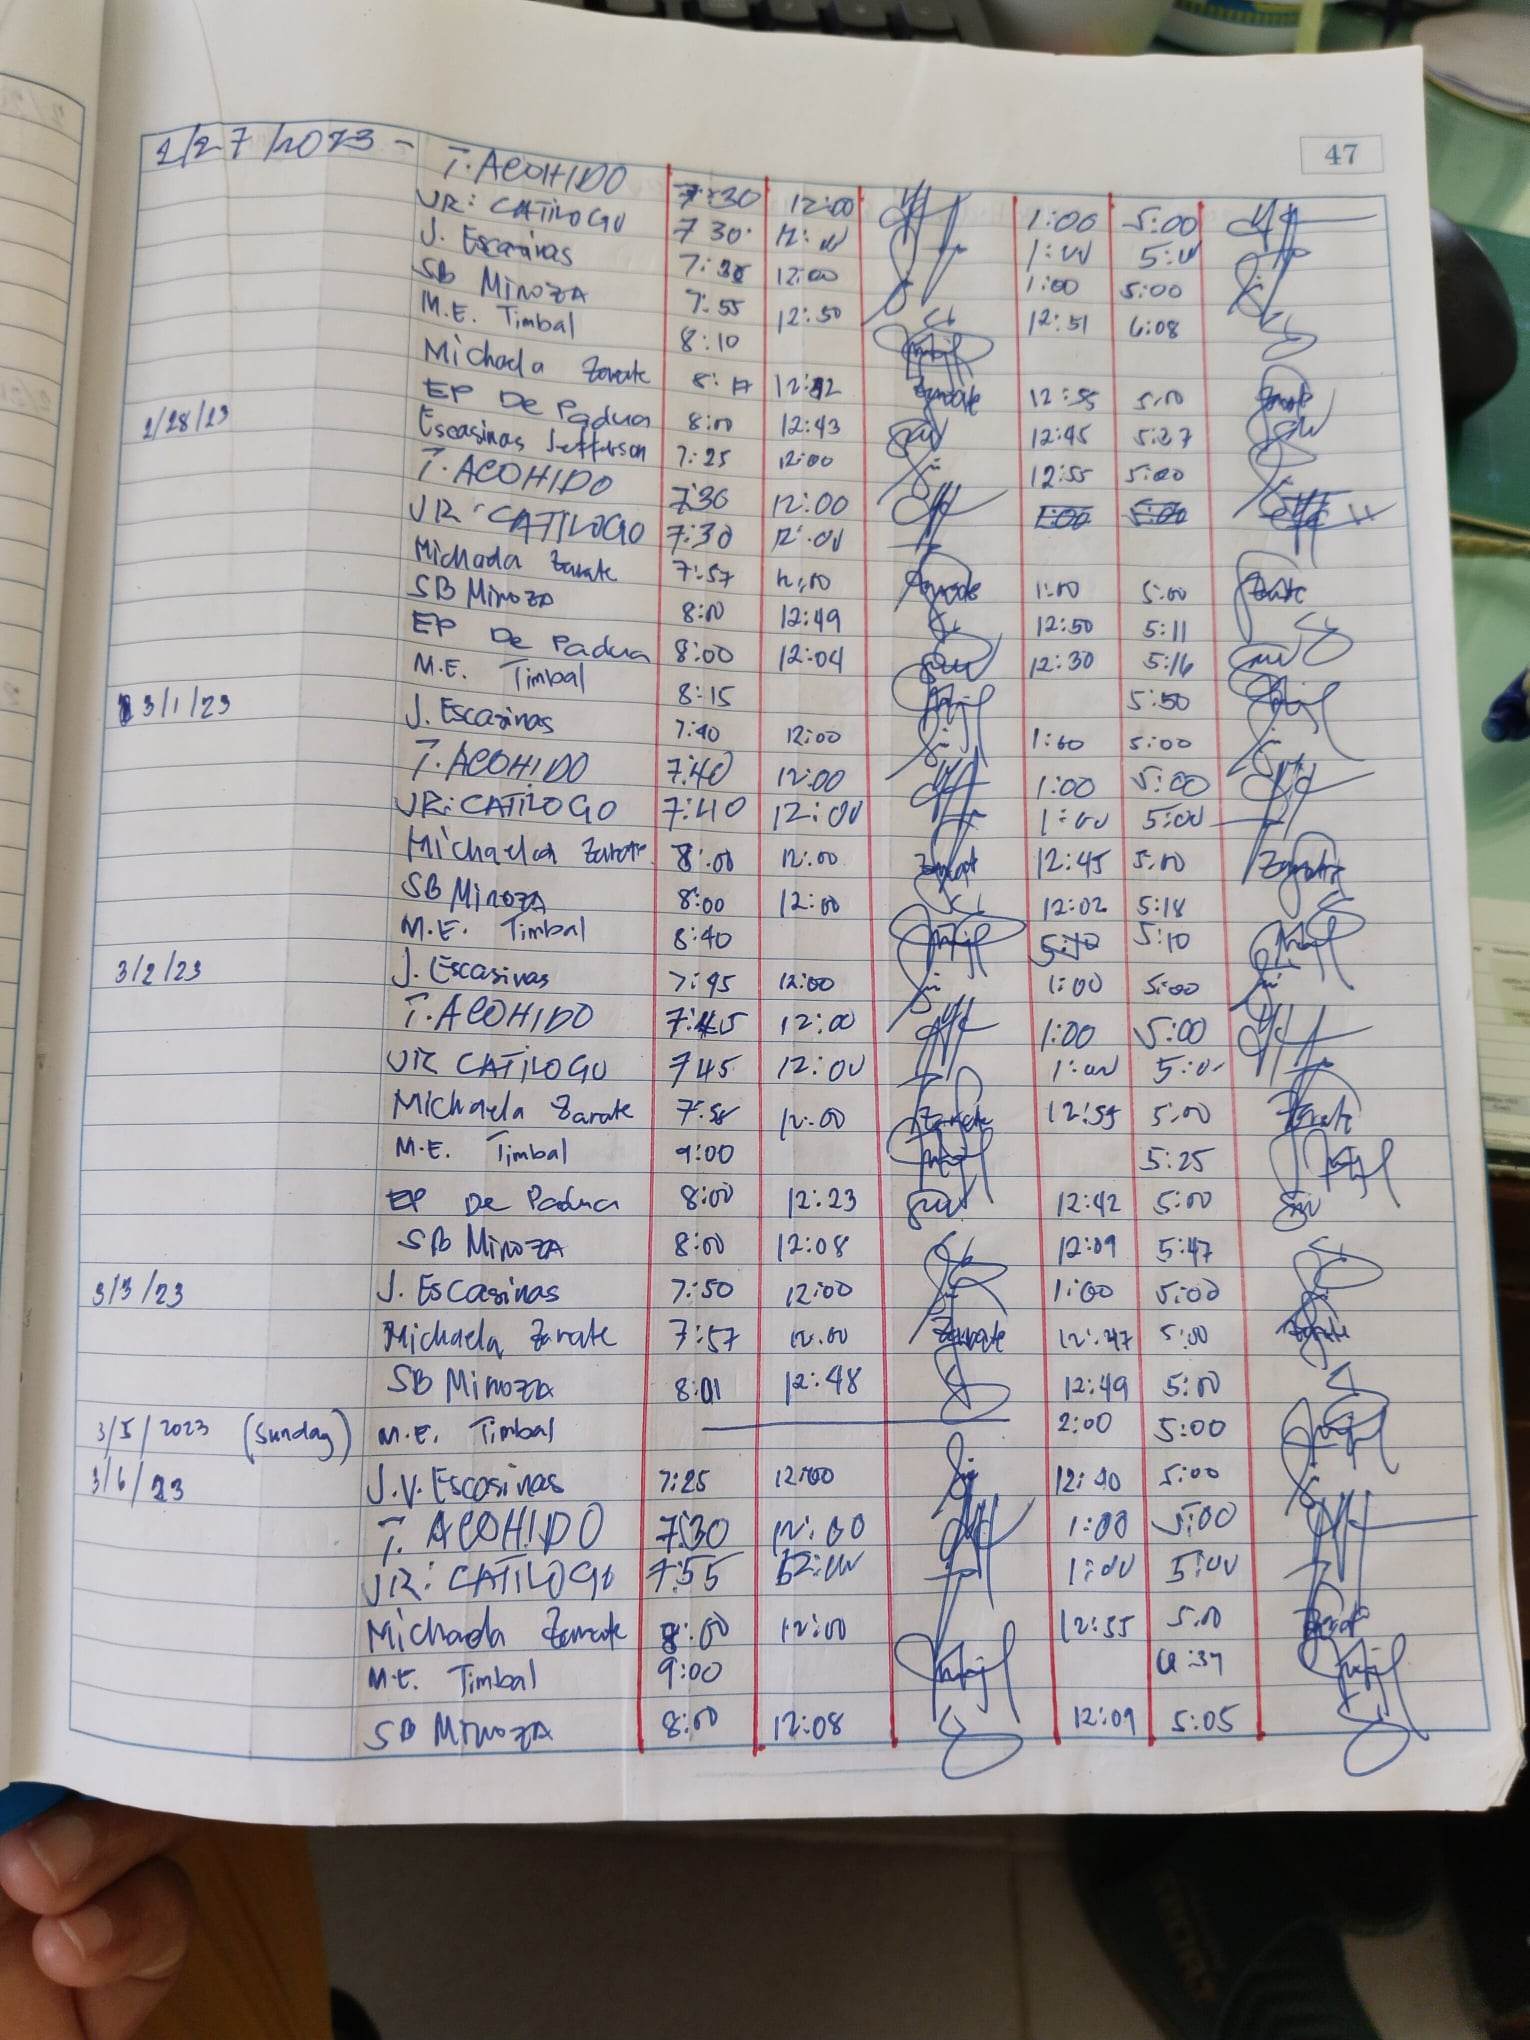 47
2/27/2023 - T. ACOHIDO 7:30 12:00 1:00 5:00
JR: CATILOGO 7 30 12:00 1:00 5:00
J. Escasinas 7:35 12:00 1:00 5:00
SB MINOZA 7:55 12:50 12:51 6:08
M.E. Timbal 8:10
Michaela Zarate 8:17 12:42 Zarate 12:55 5:00 Zarate
EP De Padua 8:00 12:43 12:45 5:27
2/28/23 Escasinas Jefferson 7:25 12:00 12:55 5:00
T. ACOHIDO 7:30 12:00 1:00 5:00
JR CATILOGO 7:30 12:00
Michaela Zarate 7:57 12:00 Zarate 1:00 5:00 Zarate
SB MINOZA 8:00 12:49 12:50 5:11
EP De Padua 8:00 12:04 12:30 5:16
M.E. Timbal 8:15 5:50
3/1/23 J. Escasinas 7:40 12:00 1:00 5:00
T. ACOHIDO 7:40 12:00 1:00 5:00
JR: CATILOGO 7:40 12:00 1:00 5:00
Michaela Zarate 8:00 12:00 Zarate 12:45 5:00 Zarate
SB MINOZA 8:00 12:00 12:02 5:18
M.E. Timbal 8:40 5:10 5:10
3/2/23 J. Escasinas 7:45 12:00 1:00 5:00
T. ACOHIDO 7:45 12:00 1:00 5:00
JR CATILOGO 745 12:00 1:00 5:00
Michaela Zarate 7:58 12:00 Zarate 12:55 5:00 Zarate
M.E. Timbal 9:00 5:25
EP De Padua 8:00 12:23 12:42 5:00
SB MINOZA 8:00 12:08 12:09 5:47
3/3/23 J. Escasinas 7:50 12:00 1:00 5:00
Michaela Zarate 7:57 12:00 Zarate 12:47 5:00 Zarate
SB MINOZA 8:01 12:48 12:49 5:00
3/5/2023 (Sunday) M.E. Timbal 2:00 5:00
3/6/23 J.V. Escasinas 7:25 12:00 12:40 5:00
T. ACOHIDO 7:30 12:00 1:00 5:00
JR: CATILOGO 7:55 12:00 1:00 5:00
Michaela Zarate 8:00 12:00 12:55 5:00 Zarate
M.E. Timbal 9:00
SB MINOZA 8:00 12:08 12:09 5:05